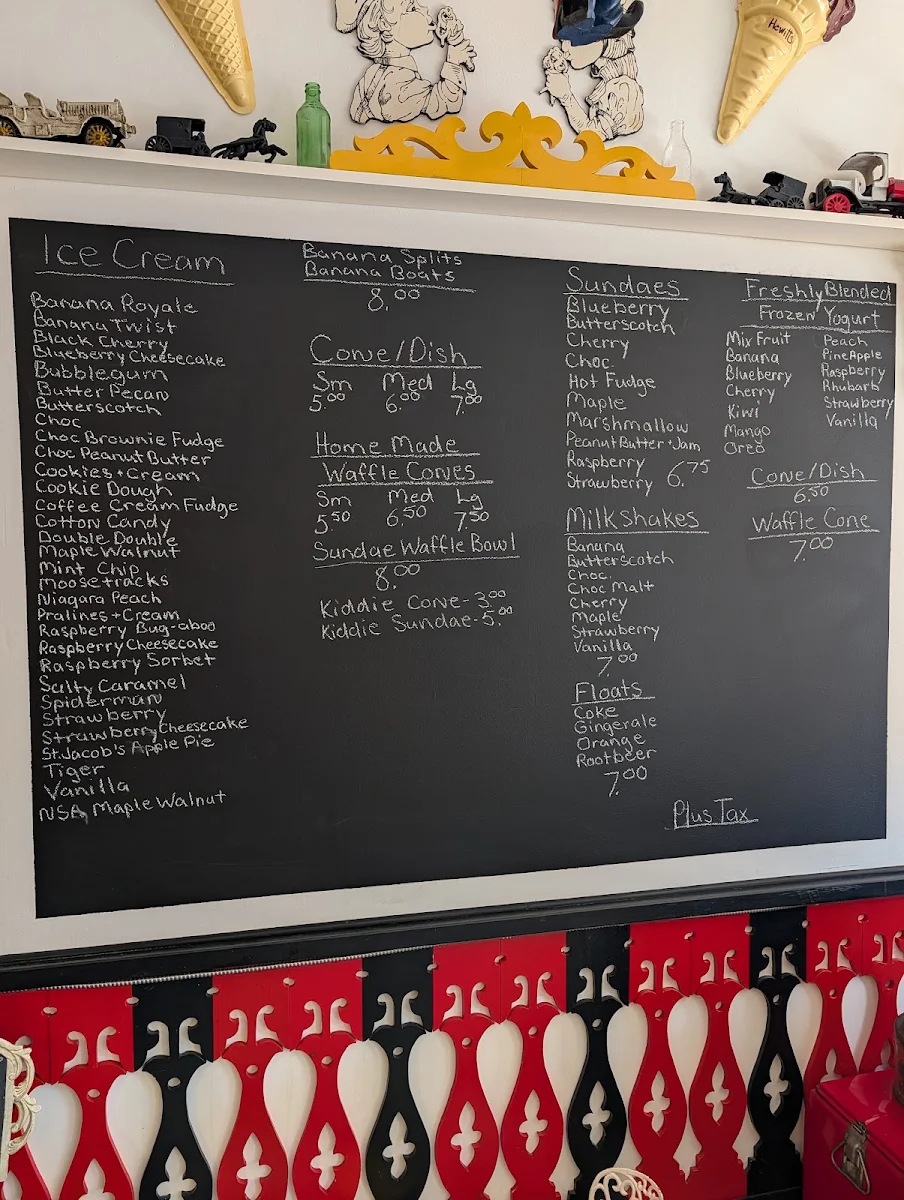 Hewitt's
Ice Cream
Banana Royale
Banana Twist
Black Cherry
Blueberry Cheesecake
Bubblegum
Butter Pecan
Butterscotch
Choc
Choc Brownie Fudge
Choc Peanut Butter
Cookies + Cream
Cookie Dough
Coffee Cream Fudge
Cotton Candy
Double Double
Maple Walnut
Mint Chip
Moosetracks
Niagara Peach
Pralines + Cream
Raspberry Bug-aboo
Raspberry Cheesecake
Raspberry Sorbet
Salty Caramel
Spiderman
Strawberry
Strawberry Cheesecake
St. Jacob's Apple Pie
Tiger
Vanilla
NSA Maple Walnut
Banana Splits
Banana Boats
8.00
Cone/Dish
Sm Med Lg
5.00 6.00 7.00
Home Made
Waffle Cones
Sm Med Lg
5.50 6.50 7.50
Sundae Waffle Bowl
8.00
Kiddie Cone - 3.00
Kiddie Sundae - 5.00
Sundaes
Blueberry
Butterscotch
Cherry
Choc.
Hot Fudge
Maple
Marshmallow
Peanut Butter + Jam
Raspberry
Strawberry 6.75
Milkshakes
Banana
Butterscotch
Choc.
Choc Malt
Cherry
Maple
Strawberry
Vanilla
7.00
Floats
Coke
Gingerale
Orange
Rootbeer
7.00
Freshly Blended
Frozen Yogurt
Mix Fruit
Banana
Blueberry
Cherry
Kiwi
Mango
Oreo
Peach
PineApple
Raspberry
Rhubarb
Strawberry
Vanilla
Cone/Dish
6.50
Waffle Cone
7.00
Plus Tax